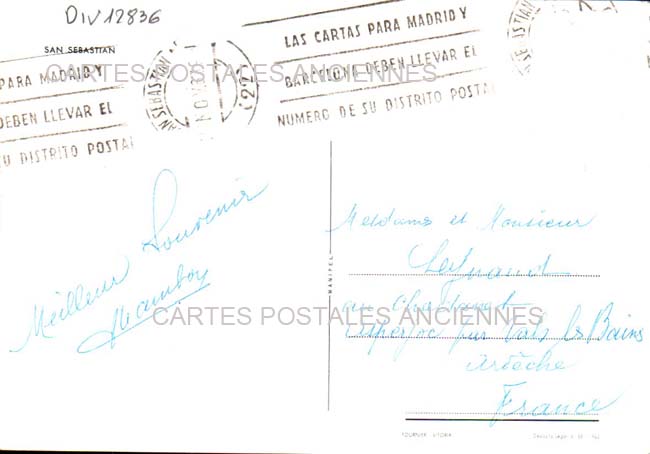 DIV12836
SAN SEBASTIAN
PARA MADRID Y
DEBEN LLEVAR EL
SU DISTRITO POSTAL
LAS CARTAS PARA MADRID Y
BARCELONA DEBEN LLEVAR EL
NUMERO DE SU DISTRITO POSTAL
CARTES POSTALES ANCIENNES
Meilleur Souvenir
MANIPEL
Mesdames et Monsieur
au
Asperjoc par Vals les Bains
Ardèche
France
CARTES POSTALES ANCIENNES
FOURNIER VITORIA